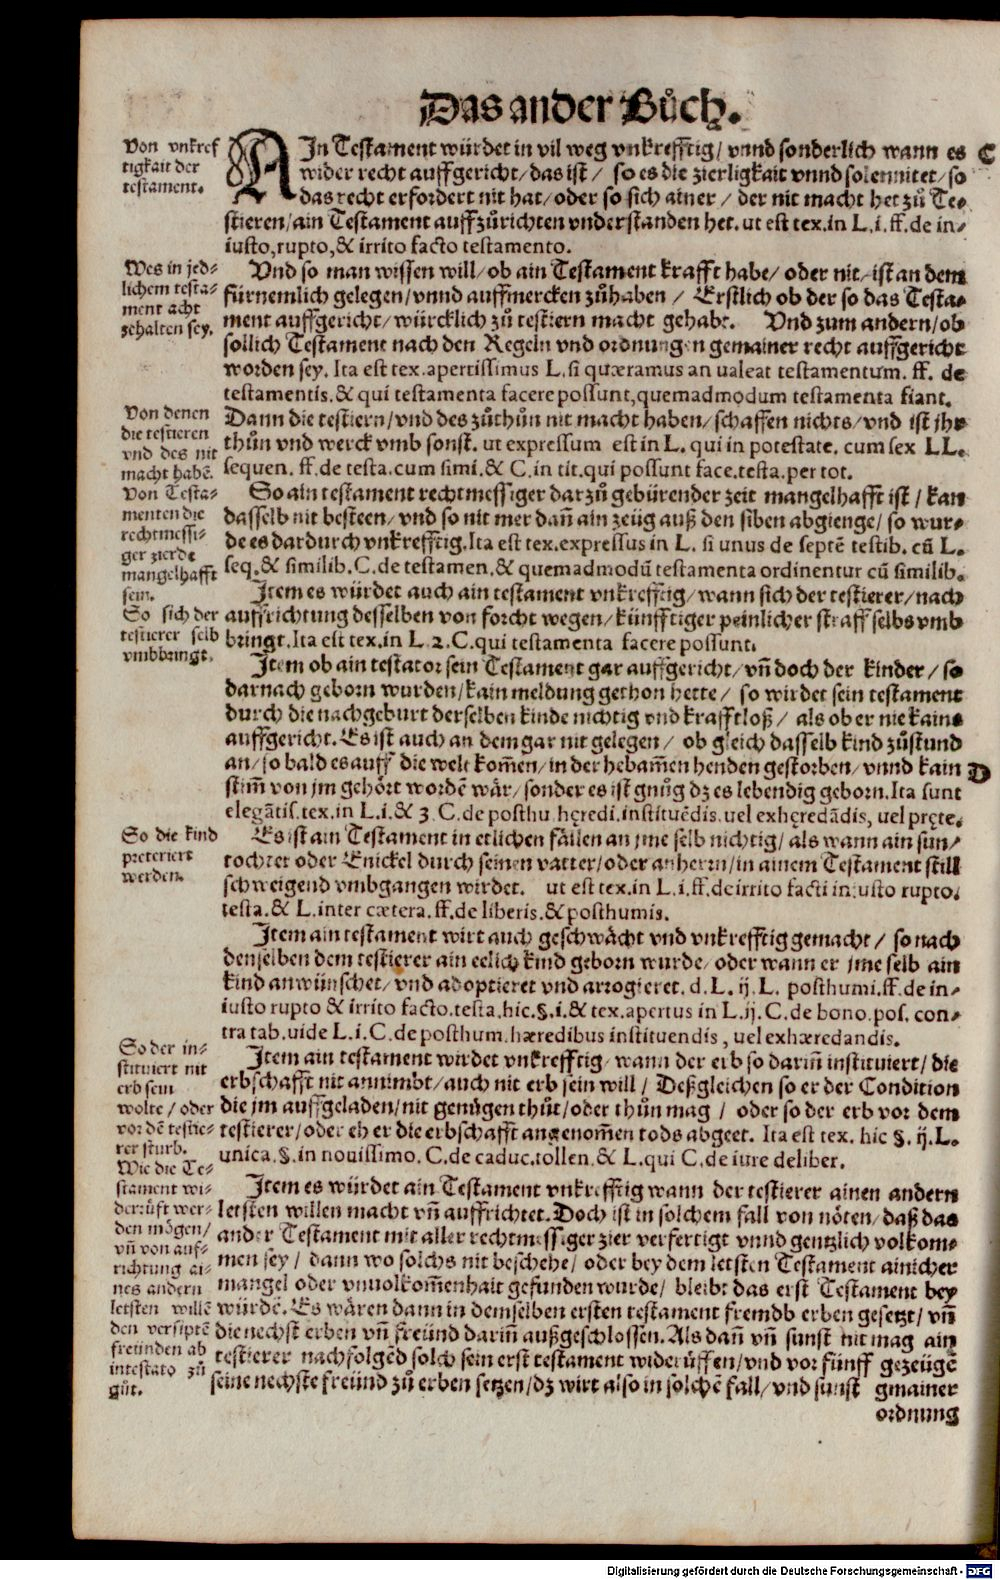 Das ander Bůch.
Von vnkref
tigkait der
testament.
AIn Testament würdet in vil weg vnkrefftig/ vnnd sonderlich wann es
wider recht auffgericht/ das ist / so es die zierligkait vnnd solennitet/ so
das recht erfordert nit hat/ oder so sich ainer / der nit macht het zů Te-
stieren/ ain Testament auffzůrichten vnderstanden het. ut est tex. in L. i. ff. de in-
iusto, rupto, & irrito facto testamento.
C
Wes in jed-
lichem testa-
ment acht
zehalten sey.
Vnd so man wissen will/ ob ain Testament krafft habe/ oder nit/ ist an dem
fürnemlich gelegen/ vnnd auffmercken zůhaben / Erstlich ob der so das Testa-
ment auffgericht/ würcklich zů testiern macht gehabt. Vnd zum andern/ ob
sollich Testament nach den Regeln vnd ordnungen gemainer recht auffgericht
worden sey. Ita est tex. apertissimus L. si quæramus an ualeat testamentum. ff. de
testamentis. & qui testamenta facere possunt, quemadmodum testamenta fiant.
Von denen
die testieren
vnd des nit
macht habē.
Dann die testiern/ vnd des zůthůn nit macht haben/ schaffen nichts/ vnd ist jhr
thůn vnd werck vmb sonst. ut expressum est in L. qui in potestate. cum sex LL.
sequen. ff. de testa. cum simi. & C. in tit. qui possunt face. testa. per tot.
Von Testa-
menten die
rechtmessi-
ger zierde
mangelhafft
sein.
So ain testament rechtmessiger darzů gebürender zeit mangelhafft ist / kan
dasselb nit besteen/ vnd so nit mer dañ ain zeüg auß den siben abgienge/ so wur-
de es dardurch vnkrefftig. Ita est tex. expressus in L. si unus de septē testib. cū L.
seq. & similib. C. de testamen. & quemadmodū testamenta ordinentur cū similib.
So sich der
testierer selb
vmbbringt.
Item es würdet auch ain testament vnkrefftig/ wann sich der testierer/ nach
auffrichtung desselben von forcht wegen/ künfftiger peinlicher straff selbs vmb
bringt. Ita est tex. in L. 2. C. qui testamenta facere possunt.
Item ob ain testator sein Testament gar auffgericht/ vñ doch der kinder / so
darnach geborn wurden/ kain meldung gethon hette / so wirdet sein testament
durch die nachgeburt derselben kinde nichtig vnd krafftloß / als ob er nie kains
auffgericht. Es ist auch an dem gar nit gelegen / ob gleich dasselb kind zůstund
an/ so bald es auff die welt kom̃en/ in der hebam̃en henden gestorben/ vnnd kain
stim̃ von jm gehört wordē wär/ sonder es ist gnůg dz es lebendig geborn. Ita sunt
elegātis. tex. in L. i. & 3. C. de posthu. hęredi. instituēdis. uel exhęredādis, uel pręte.
D
So die kind
preteriert
werden.
Es ist ain Testament in etlichen fällen an jme selb nichtig/ als wann ain sun/
tochter oder Enickel durch seinen vatter/ oder anherrn/ in ainem Testament still
schweigend vmbgangen wirdet. ut est tex. in L. i. ff. de irrito facti iniusto rupto.
testa. & L. inter cætera. ff. de liberis. & posthumis.
Item ain testament wirt auch geschwächt vnd vnkrefftig gemacht / so nach
denselben dem testierer ain eelich kind geborn wurde/ oder wann er jme selb ain
kind anwünschet/ vnd adoptieret vnd arrogieret. d. L. ij. L. posthumi. ff. de in-
iusto rupto & irrito facto. testa. hic. §. i. & tex. apertus in L. ij. C. de bono. pos. con-
tra tab. uide L. i. C. de posthum. hæredibus instituendis, uel exhæredandis.
So der in-
stituiert nit
erb sein
wolte / oder
vor dē testie-
rer sturb.
Item ain testament wirdet vnkrefftig/ wann der erb so darin̄ instituiert/ die
erbschafft nit annimbt/ auch nit erb sein will / Deßgleichen so er der Condition
die jm auffgeladen/ nit genügen thůt/ oder thůn mag / oder so der erb vor dem
testierer/ oder eh er die erbschafft angenom̃en tods abgeet. Ita est tex. hic §. ij. L.
unica. §. in nouissimo. C. de caduc. tollen. & L. qui C. de iure deliber.
Wie die Te-
stament wi-
derrüft wer-
den mögen/
vñ von auf-
richtung ai-
nes andern
letsten willē
den versiptē
freünden ab
intestato zů
gůt.
Item es würdet ain Testament vnkrefftig wann der testierer ainen andern
letsten willen macht vñ auffrichtet. Doch ist in solchem fall von nöten/ daß das
ander Testament mit aller rechtmessiger zier verfertigt vnnd gentzlich volkom-
men sey / dann wo solchs nit beschehe/ oder bey dem letsten Testament ainicher
mangel oder vnuolkom̃enhait gefunden wurde/ bleibt das erst Testament bey
würdē. Es wären dann in demselben ersten testament frembd erben gesetzt/ vñ
die nechst erben vñ freünd darin̄ außgeschlossen. Als dañ vñ sunst nit mag ain
testierer nachfolgēd solch sein erst testament widerüffen/ vnd vor fünff gezeügē
seine nechste freünd zů erben setzen/ dz wirt also in solchē fall/ vnd sunst gmainer
ordnung
Digitalisierung gefördert durch die Deutsche Forschungsgemeinschaft - DFG